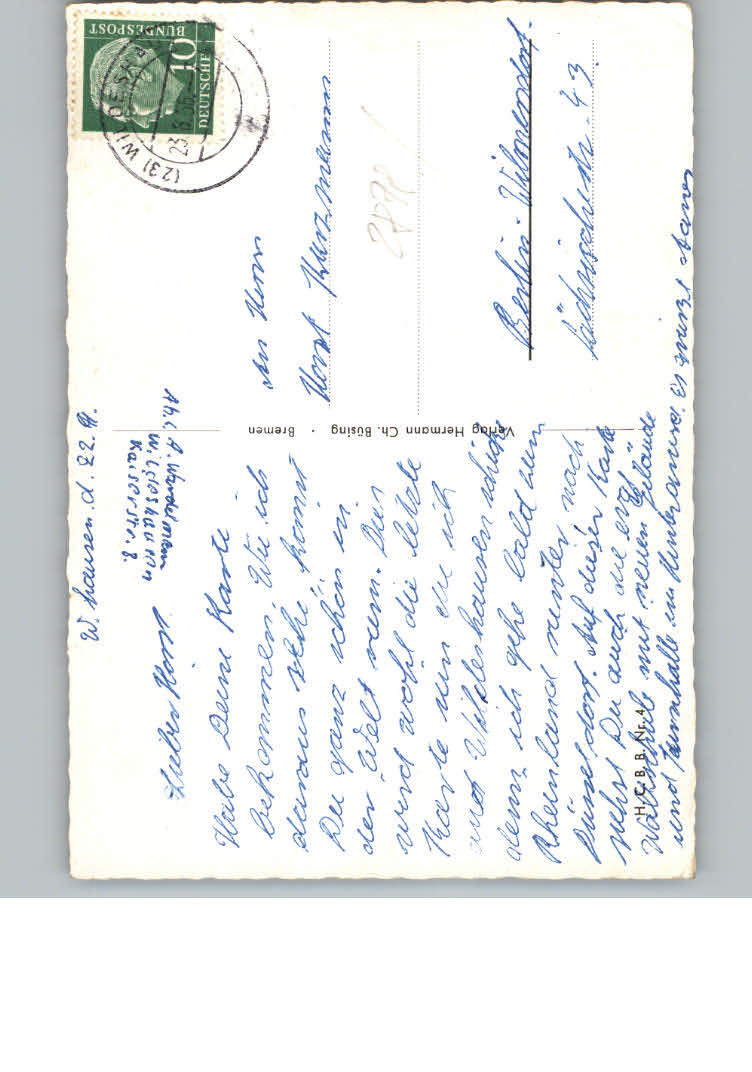 W. hausen. d. 22.
Abs. A.
Wildeshausen
Kaiserstr. 8.
Lieber Horst
Habe Deine Karte
bekommen. Wie ich
daraus sehe kommst
Du ganz schön in
der Welt rum. Dies
wird wohl die letzte
Karte von die ich
aus Wildeshausen schicke
denn ich gehe bald zum
Rheinland runter nach
Düsseldorf. Auf dieser Karte
siehst Du auch die evgl.
mit neuem Gelände
und Turnhalle im Hintergrund. Es grüßt
H. C. B. B. Nr. 4
Verlag Hermann Ch. Büsing · Bremen
DEUTSCHE
BUNDESPOST
10
(23) WILDESHA
23.8.56
An Herrn
Horst
Berlin-Wilmersdorf.
Sächsischestr. 43